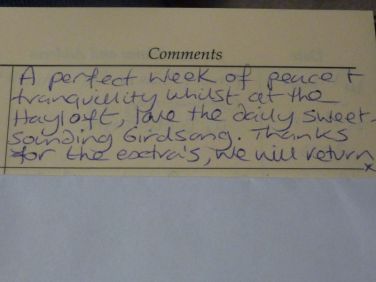 Comments
A perfect week of peace +
tranquillity whilst at the
Hayloft, love the daily sweet-
sounding birdsong. Thanks
for the extra's, we will return
x